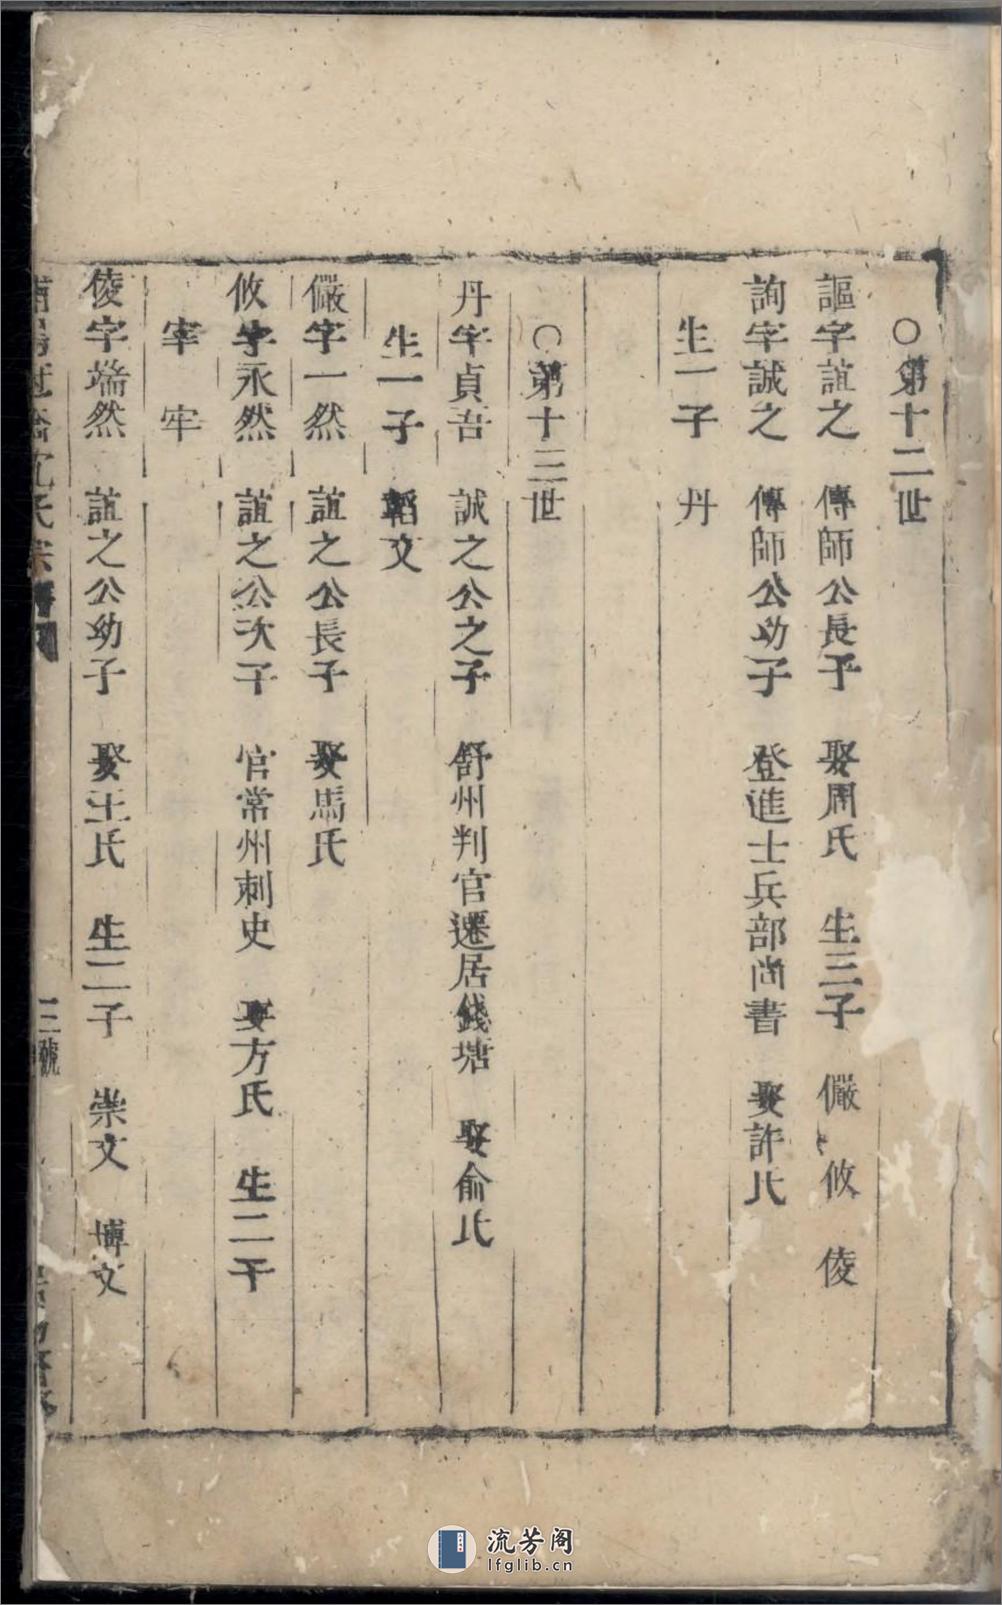 ○第十二世
謳字誼之 傳師公長子 娶周氏 生三子 儼 攸 倰
詢字誠之 傳師公幼子 登進士兵部尚書 娶許氏
生一子 丹
○第十三世
丹字貞吾 誠之公之子 舒州判官遷居錢塘 娶俞氏
生一子 韜文
儼字一然 誼之公長子 娶馬氏
攸字永然 誼之公次子 官常州刺史 娶方氏 生二子
宰 牢
倰字端然 誼之公幼子 娶王氏 生二子 崇文 博文
沈氏宗
三號
流芳阁
lfglib.cn